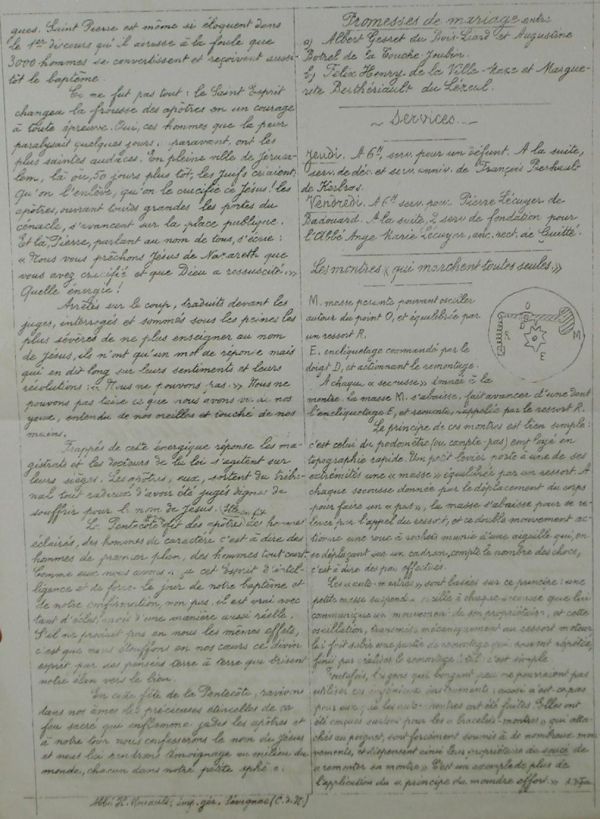 ques. Saint Pierre est même si éloquent dans
le 1er discours qu'il adresse à la foule que
3000 hommes se convertissent et reçoivent aussi-
tôt le baptême.
Ce ne fut pas tout : le Saint Esprit
changea la frousse des apôtres en un courage
à toute épreuve. Oui, ces hommes que la peur
paralysait quelques jours auparavant, ont les
plus saintes audaces. En pleine ville de Jérusa-
lem, là où, 50 jours plus tôt, les Juifs criaient:
Qu'on l'enlève, qu'on le crucifie ce Jésus! les
apôtres, ouvrant toutes grandes les portes du
cénacle, s'avancent sur la place publique.
Et là, Pierre, parlant au nom de tous, s'écrie :
« Nous vous prêchons Jésus de Nazareth que
vous avez crucifié et que Dieu a ressuscité. »
Quelle énergie!
Arrêtés sur le coup, traduits devant les
juges, interrogés et sommés sous les peines les
plus sévères de ne plus enseigner au nom
de Jésus, ils n'ont qu'un mot de réponse mais
qui en dit long sur leurs sentiments et leurs
résolutions : « Nous ne pouvons pas » Nous ne
pouvons pas taire ce que nous avons vu de nos
yeux, entendu de nos oreilles et touché de nos
mains.
Frappés de cette énergique réponse les ma-
gistrats et les docteurs de la loi s'agitent sur
leurs sièges. Les apôtres, eux, sortent du tribu-
nal tout radieux d'avoir été jugés dignes de
souffrir pour le nom de Jésus.
La Pentecôte fit des apôtres des hommes
éclairés, des hommes de caractère c'est à dire des
hommes de premier plan, des hommes tout court.
Comme eux nous avons reçu cet Esprit d'intel-
ligence et de force le jour de notre baptême et
de notre confirmation, non pas, il est vrai avec
tant d'éclat, mais d'une manière aussi réelle.
S'il ne produit pas en nous les mêmes effets,
c'est que nous étouffons en nos cœurs ce divin
esprit par des pensées terre à terre qui brisent
notre élan vers le bien.
En cette fête de la Pentecôte, ravivons
dans nos âmes les précieuses étincelles de ce
feu sacré qui enflamma jadis les apôtres et
à notre tour nous confesserons le nom de Jésus
et nous lui rendrons témoignage au milieu du
monde, chacun dans notre petite sphère.
Abbé H. imp. gér. Sévignac (C. d. N.)
Promesses de mariage entre
a) Albert Gesret du Bois-Liard et Augustine
Botrel de la Touche Joubin.
b) Félix Henry de la Ville et Margue-
rite Berthériault du
Services.
Jeudi. A 6h, serv. pour un défunt. A la suite,
serv. de déc. et serv. anniv. de François Perhault
de Kerbros.
Vendredi. A 6h serv. pour Pierre Lécuyer de
Badouard. A la suite, 2 serv. de fondation pour
l'Abbé Ange Marie Lécuyer, anc. rect. de Guitté.
Les montres « qui marchent toutes seules »
M. masse pesante pouvant osciller
autour du point O, et équilibrée par
un ressort R.
E. encliquetage commandé par le
doigt D, et actionnant le remontage.
A chaque « secousse » donnée à la
montre la masse M. s'abaisse, fait avancer d'une dent
l'encliquetage E, et remonte, rappelée par le ressort R.
O
D
R
E
M
Le principe de ces montres est bien simple :
c'est celui du podomètre (ou compte-pas) employé en
topographie rapide. Un petit levier porte à une de ses
extrémités une « masse » équilibrée par un ressort. A
chaque secousse donnée par le déplacement du corps
pour faire un « pas », la masse s'abaisse pour se re-
lever par l'appel du ressort, et ce double mouvement ac-
tionne une roue à rochet munie d'une aiguille qui, en
se déplaçant sur un cadran, compte le nombre des chocs,
c'est à dire des pas effectués.
Les « auto-montres » sont basées sur ce principe : une
petite masse suspendue oscille à chaque secousse que lui
communique un mouvement de son propriétaire, et cette
oscillation, transmise mécaniquement au ressort moteur
lui fait subir une partie de remontage qui, souvent répétée,
finit par réaliser le remontage total : c'est simple.
Toutefois, les gens qui bougent peu ne pourraient pas
utiliser ces ingénieux instruments ; aussi n'est-ce pas
pour eux que les auto-montres ont été faites. Elles ont
été conçues surtout pour les « bracelets-montres » qui atta-
chés au poignet, sont forcément soumis à de nombreux mou-
vements, et dispensent ainsi leur propriétaire du souci de
« remonter sa montre » C'est un exemple de plus de
l'application du « principe du moindre effort. »